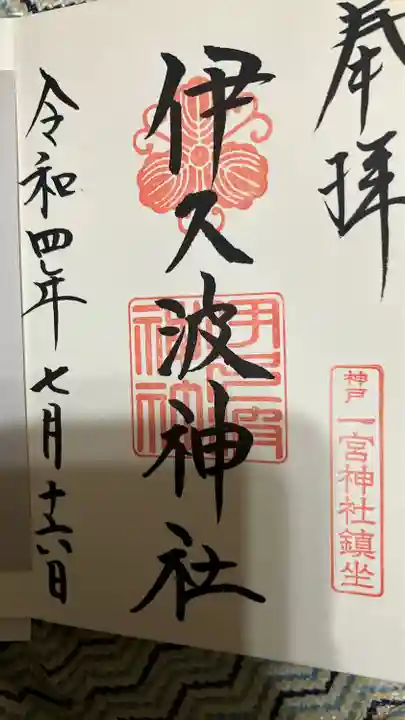 奉拝
神戸 一宮神社鎮坐
伊久波神社
令和四年七月十六日